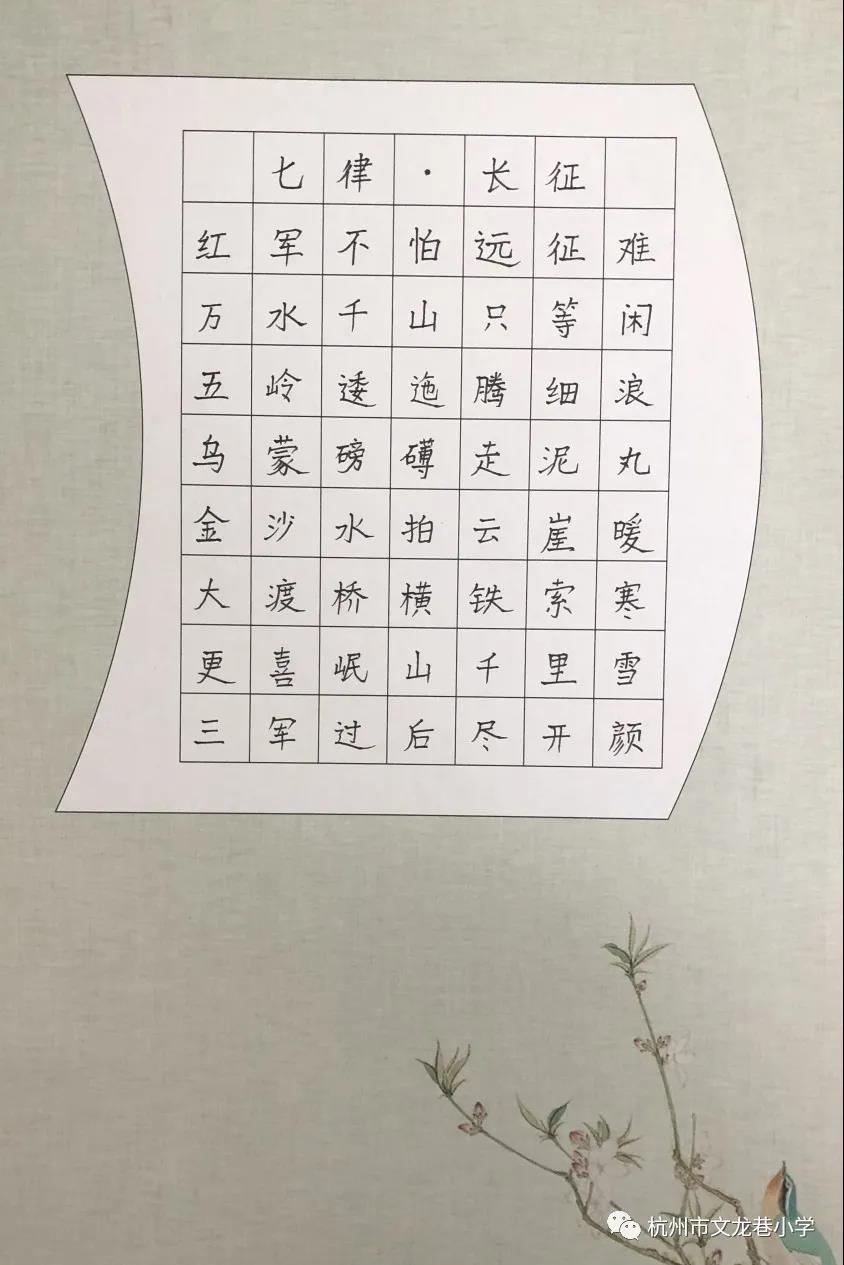 七律·长征
红军不怕远征难
万水千山只等闲
五岭逶迤腾细浪
乌蒙磅礴走泥丸
金沙水拍云崖暖
大渡桥横铁索寒
更喜岷山千里雪
三军过后尽开颜
杭州市文龙巷小学